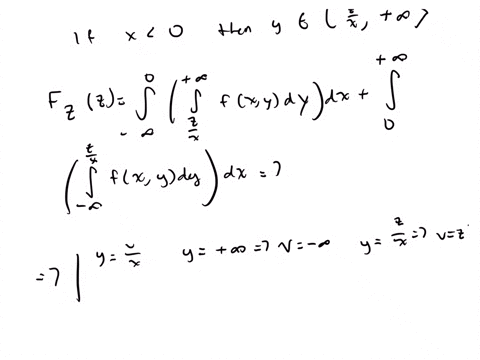 If x < 0 then y ∈ (z/x, +∞)
F_Z(z) = ∫_{-∞}^{0} ( ∫_{z/x}^{+∞} f(x,y)dy ) dx + ∫_{0}^{+∞}
( ∫_{-∞}^{z/x} f(x,y)dy ) dx =>
=> | y = v/x y = +∞ => v = -∞ y = z/x => v = z